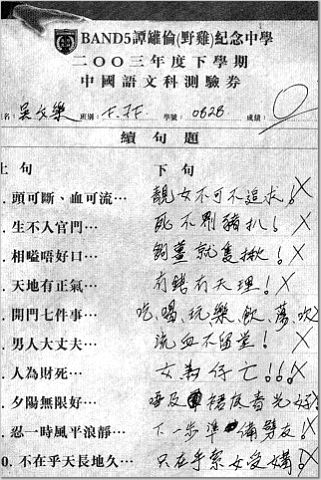 BAND5譚鏙倫(野雞)紀念中學
二〇〇三年度下學期
中國語文科測驗券
名: 吳文樂 班別: F.5F. 學號: 0626 成績: 0
續句題
上句 下句
. 頭可斷、血可流⋯ 靚女不可不追求! X
. 生不入官門⋯ 死不劏豬扒! X
. 相嗌唔好口⋯ 就隻揪! X
. 天地有正氣⋯ 有錢有天理! X
. 開門七件事⋯ 吃、喝、玩、樂、飲、蕩、吹
. 男人大丈夫⋯ 流血不留堂! X
. 人為財死⋯ 女為仔亡!!! X
. 夕陽無限好⋯ 唔及裙底春光好! X
. 忍一時風平浪靜⋯ 下一步準備劈友! X
0. 不在乎天長地久⋯ 只在乎系女受媾! X